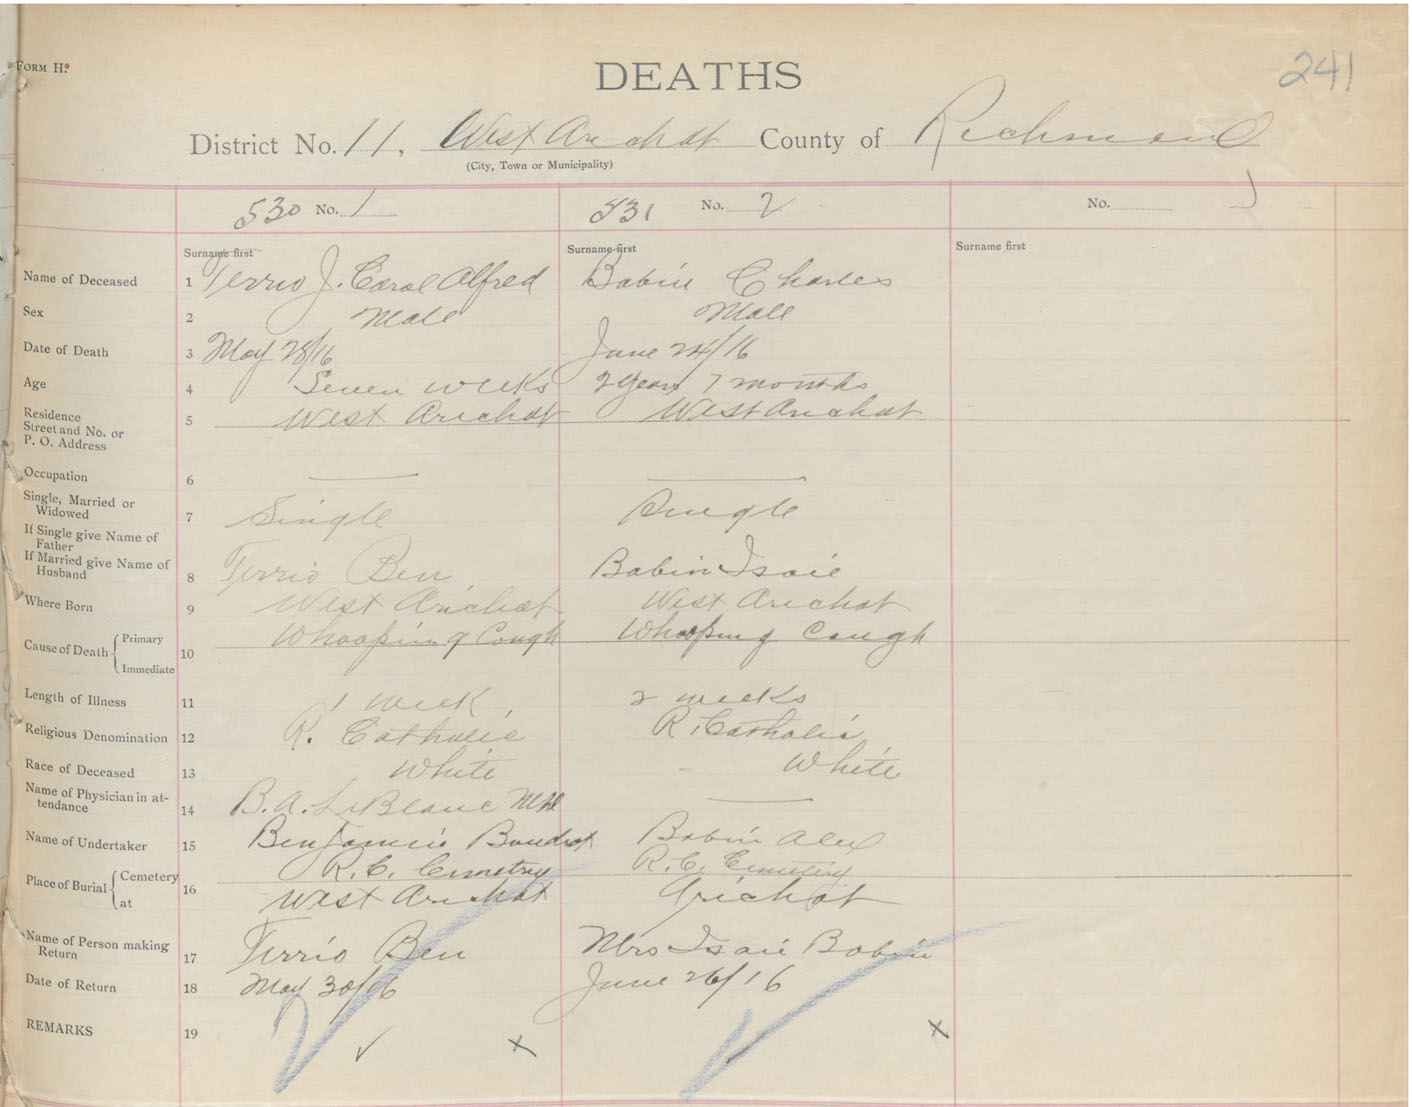 FORM H.
DEATHS
241
District No. 11, West Arichat County of Richmond
(City, Town or Municipality)
530 No. 1
531 No. 2
No.
Surname first
Surname first
Surname first
Name of Deceased 1 Terrio J. Carol Alfred Babin Charles
Sex 2 Male Male
Date of Death 3 May 28/16 June 24/16
Age 4 Seven weeks 2 years 7 months
Residence
Street and No. or
P. O. Address
5 West Arichat West Arichat
Occupation 6 — —
Single, Married or
Widowed
7 Single Single
If Single give Name of
Father
If Married give Name of
Husband
8 Terrio Ben Babin Isaie
Where Born 9 West Arichat West Arichat
Cause of Death { Primary
Immediate
10 Whooping Cough Whooping Cough
Length of Illness 11 1 week 2 weeks
Religious Denomination 12 R. Catholic R. Catholic
Race of Deceased 13 White White
Name of Physician in at-
tendance
14 B. A. LeBlanc MD —
Name of Undertaker 15 Benjamin Boudrot Babin Alex
Place of Burial { Cemetery
at
16 R. C. Cemetry R. C. Cemetery
West Arichat Arichat
Name of Person making
Return
17 Terrio Ben Mrs Isaie Babin
Date of Return 18 May 30/16 June 26/16
REMARKS 19